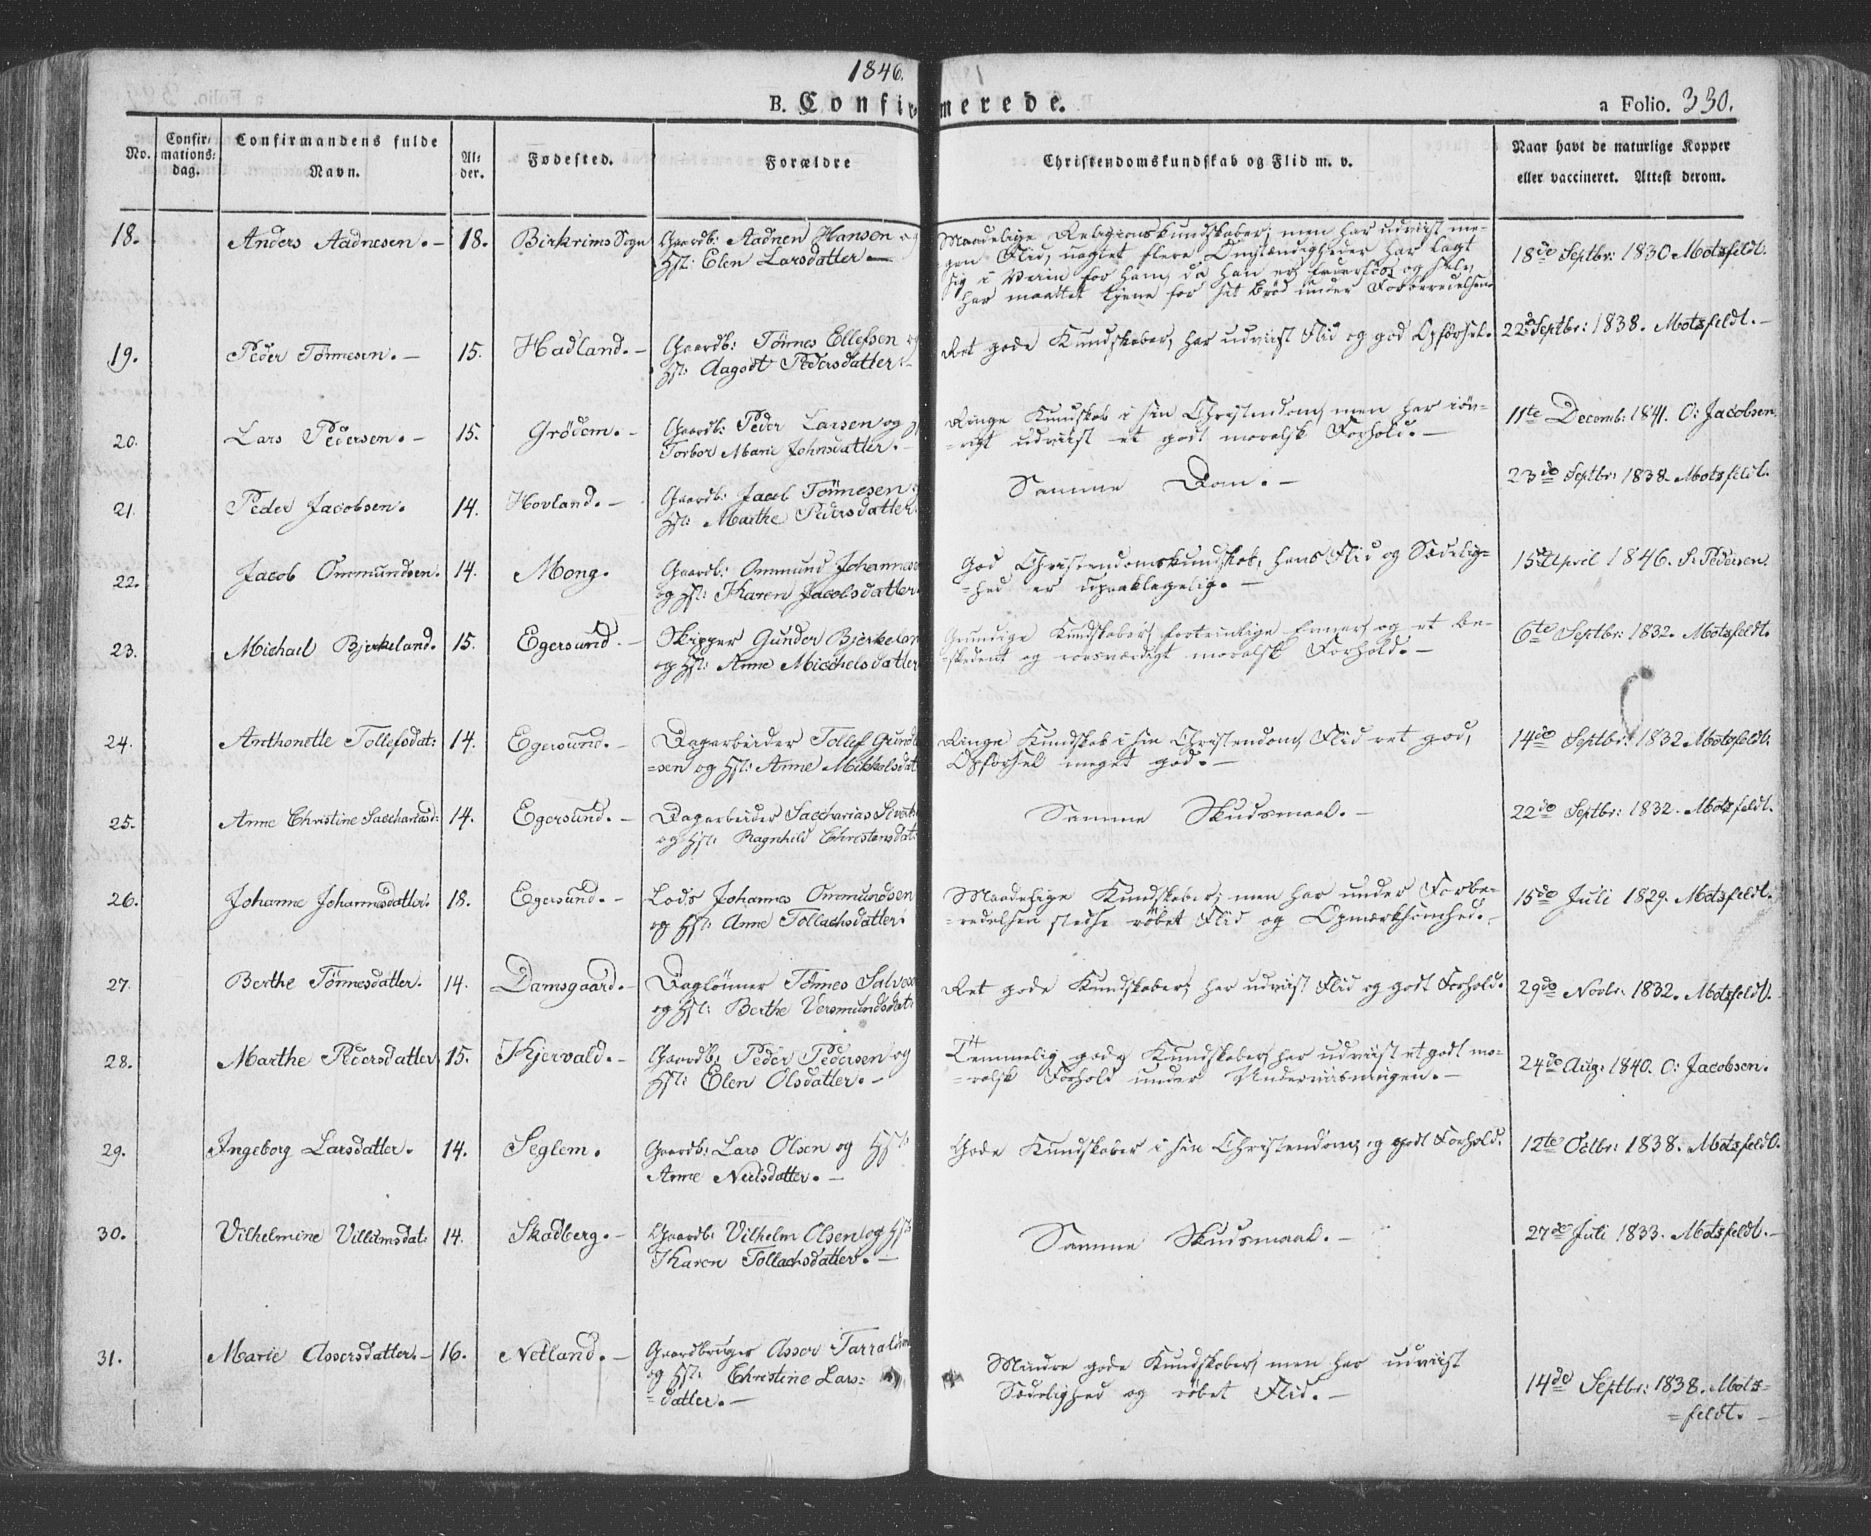 1846.
B. Confirmerede.
a Folio. 330.
No.
Confir-
mations-
dag.
Confirmandens fulde
Navn.
Al-
der.
Fødested.
Forældre
Christendomskundskab og Flid m. v.
Naar havt de naturlige Kopper
eller vaccineret. Attest derom.
18. Anders Aadnesen. – 18. Birkrims Sogn Gaardb: Aadnen Hansen og
Hst: Elen Larsdatter –
Maadelige Religionskundskaber, men har udviist me-
gen Flid, uagtet flere Omstændigheder har lagt
sig i Veien for ham, da han er faderløs og selv
har maattet tjene for sit Brød under Forberedelsen
18de Septbr: 1830 Motzfeldt.
19. Peder Tönnesen. – 15. Hadland. – Gaardb: Tönnes Ellefsen og
Hst: Aagodt Pedersdatter. –
Ret gode Kundskaber, har udviist Flid og god Opförsel.
22de Septbr: 1838. Motzfeldt. –
20. Lars Pedersen. – 15. Grödem. – Gaardb: Peder Larsen og
Torbor Marie Johnsdatter. –
Ringe Kundskab i sin Christendom, men har iöv-
rigt udviist et godt moralsk Forhold. –
11te Decemb: 1841. O: Jacobsen.
21. Peder Jacobsen. 14. Hovland. – Gaardb: Jacob Tönnesen
Hst: Marthe Pedersdatter.
Samme Dom. –
23de Septbr: 1838. Motzfeldt.
22. Jacob Ommundsen. 14. Mong. Gaardb: Ommund Johannes
og Hst: Karen Jacobsdatter.
God Christendomskundskab, hans Flid og Sædelig-
=hed er upaaklagelig. –
15de April 1846. S: Pedersen.
23. Michael Bjerkeland. 15. Egersund. – Skipper Gunder Bjerkelan
og Hst: Anne Micchelsdatter
Grundige Kundskaber, fortrinlige Evner, og et be-
=skedent og rosværdigt moralsk Forhold. –
6te Septbr: 1832. Motzfeldt.
24. Anthonette Tollefsdat: 14. Egersund. – Dagarbeider Tollef Gund
=sen og Hst: Anne Mikkelsdat
Ringe Kundskab i sin Christendom, Flid ret god,
Opförsel meget god. –
14de Septbr: 1832 Motzfeldt.
25. Anne Christine Sacchariasd: 14. Egersund. – Dagarbeider Saccharias
og Hst: Ragnhild Christensdat:
Samme Skudsmaal. –
22de Septbr: 1832. Motzfeldt.
26. Johanne Johannesdatter. 18. Egersund. – Lods Johannes Ommundsen
og Hst: Anne Tollachsdatter.
Maadelige Kundskaber, men har under Forbe-
=redelsen stedse röbet Flid og Opmærksomhed. –
15de Juli 1829. Motzfeldt.
27. Berthe Tönnesdatter. 14. Damsgaard. – Daglönner Tönnes Salves
og Hst: Berthe Vermundsdat:
Ret gode Kundskaber, har udviist Flid og godt Forhold.
29de Novbr: 1832. Motzfeldt.
28. Marthe Pedersdatter 15. Kjervald. – Gaardb: Peder Pedersen og
Hst: Elen Olsdatter. –
Temmelig gode Kundskaber, har udviist et godt mo-
=ralsk Forhold under Underviisningen. –
24de Aug: 1840. O: Jacobsen.
29. Ingeborg Larsdatter. 14. Seglem. Gaardb: Lars Olsen og Hst:
Anne Neilsdatter. –
Gode Kundskaber i sin Christendom, og godt Forhold.
12te Octbr: 1838. Motzfeldt.
30. Vilhelmine Villumsdat: 14. Skadberg. – Gaardb: Vilhelm Olsen og Hst:
Karen Tollachsdatter. –
Samme Skudsmaal. –
27de Juli 1833. Motzfeldt. –
31. Marie Assersdatter. – 16. Netland. – Gaardbruger Asser Tarralds
og Hst: Christine Lars=
=datter. –
Mindre gode Kundskaber, men har udviist
Sædelighed og röbet Flid. –
14de Septbr: 1838. Motz=
=feldt. –